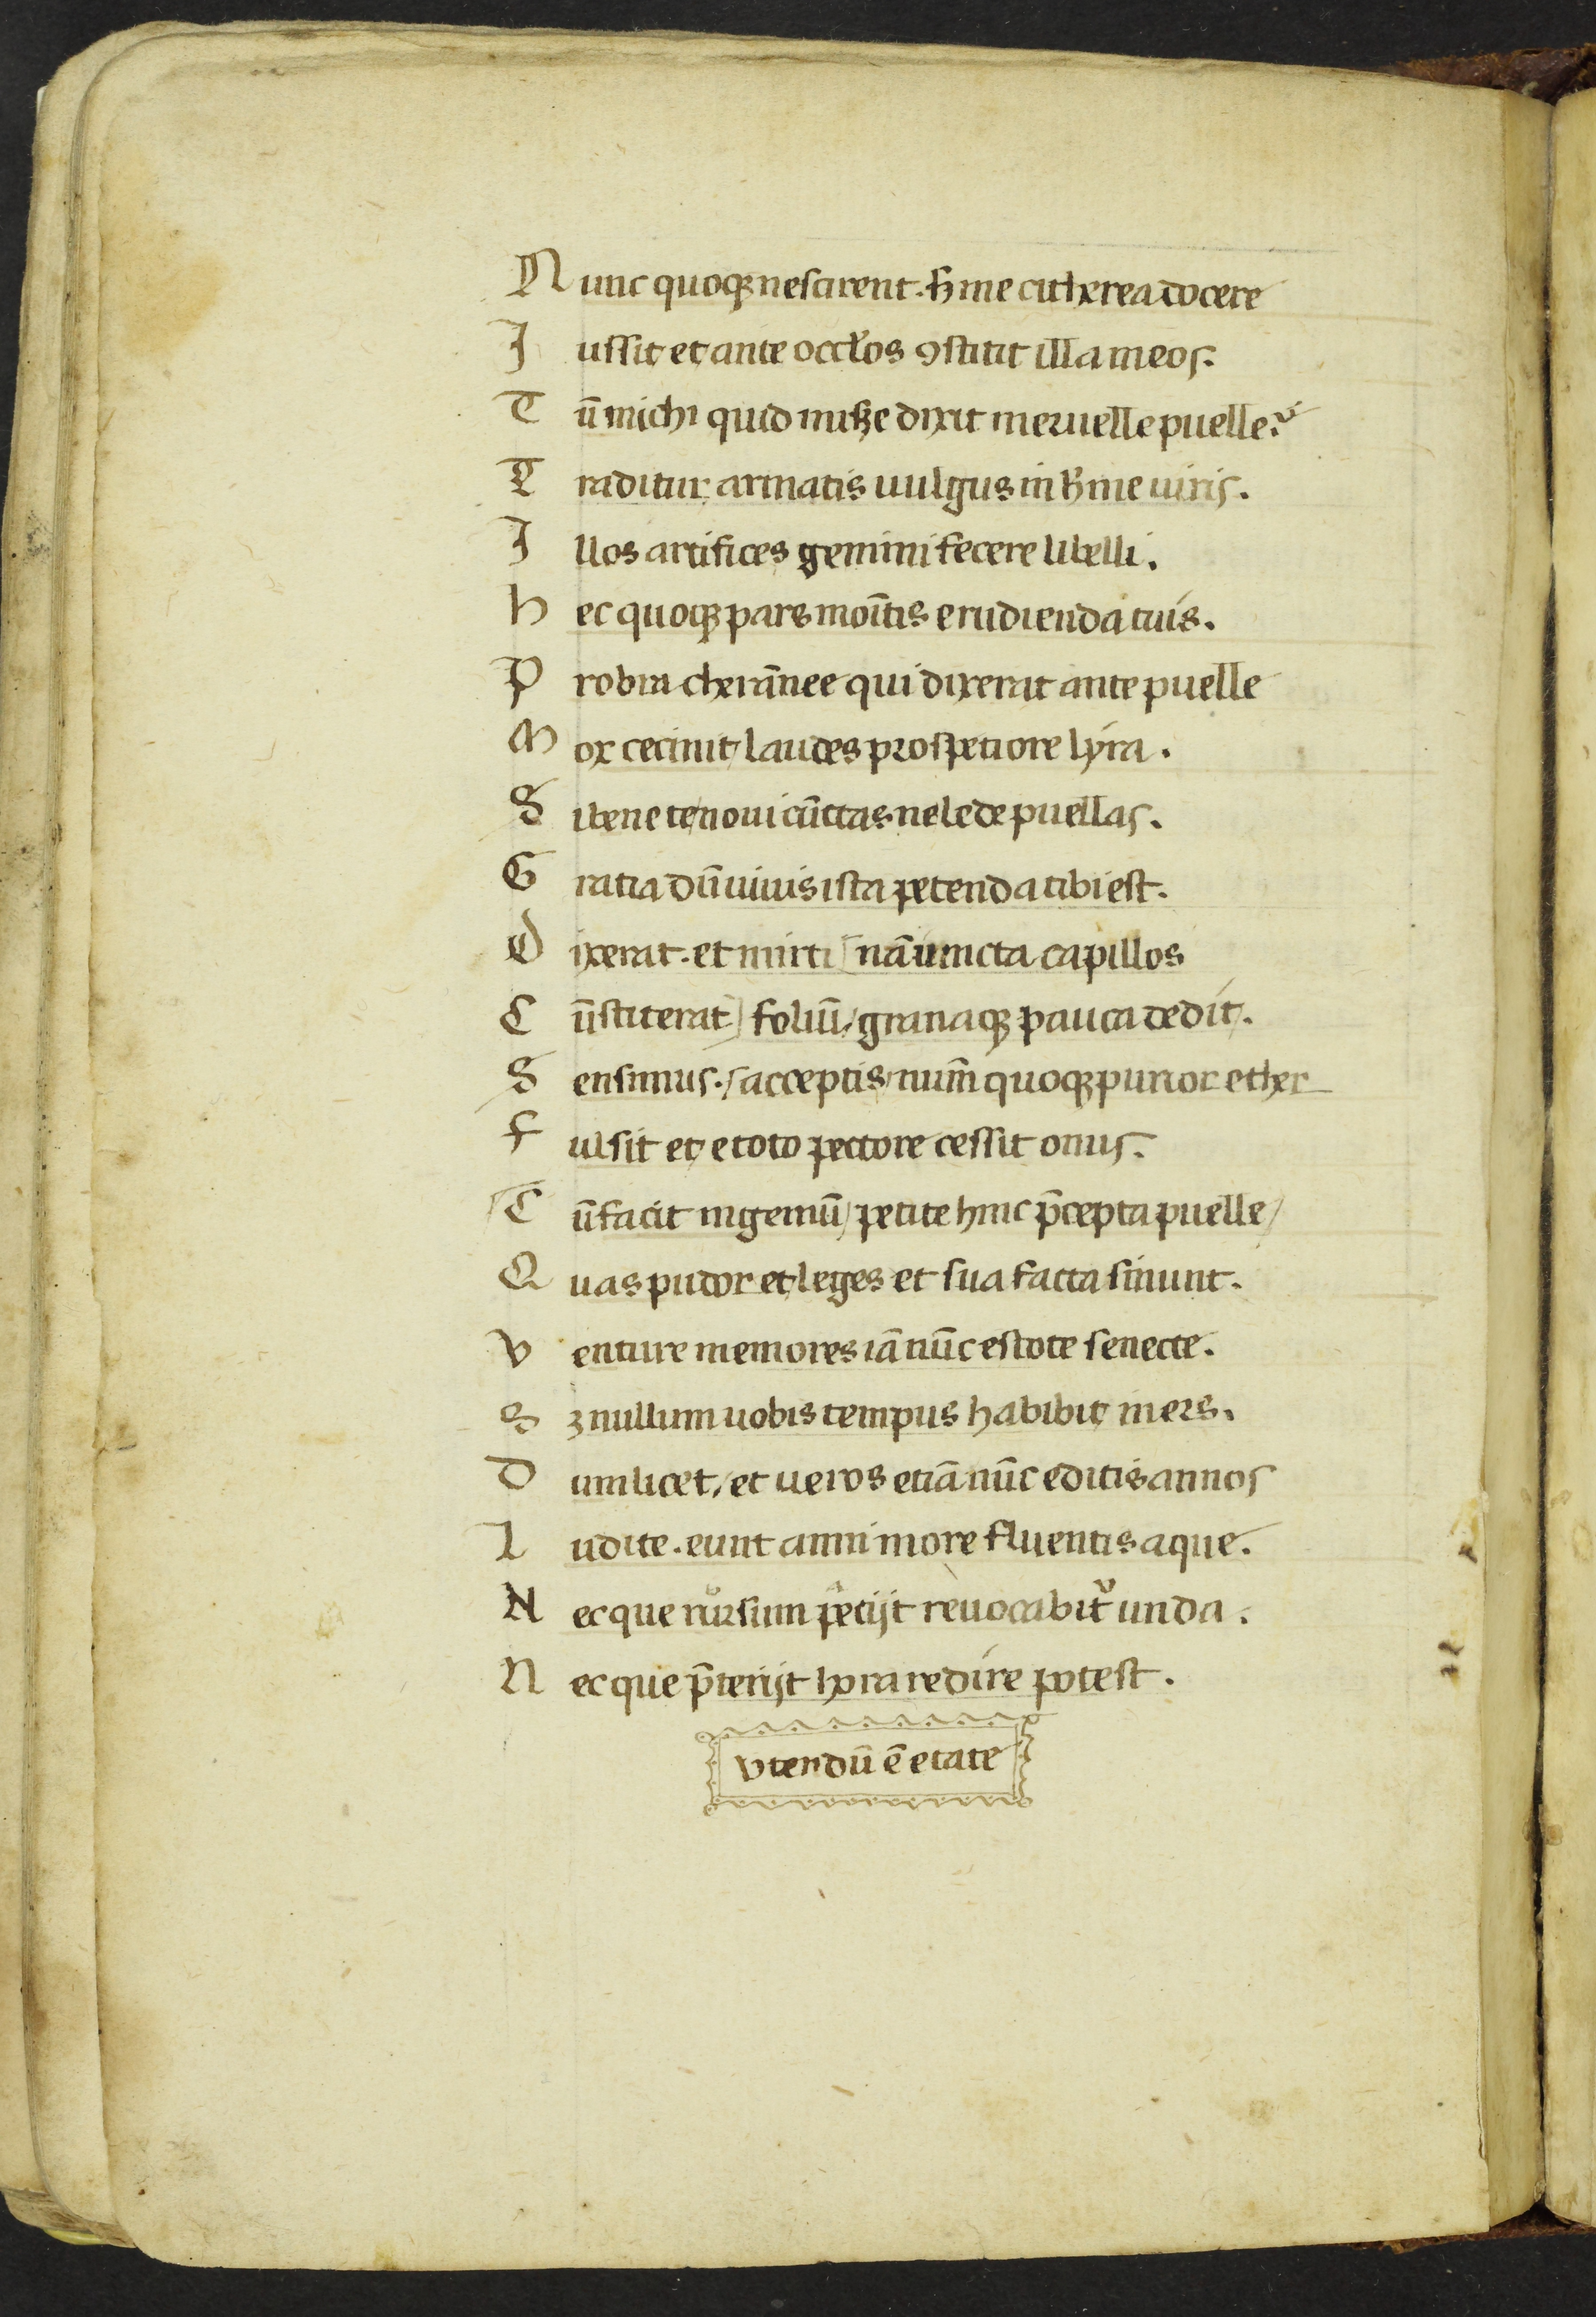 Nunc quoqꝫ nescirent. ß me citherea docere
Iussit et ante occłos ꝯstitit illa meos.
Tū michi quid misꝫe dixit meruelle puelle?
Traditur armatis uulgus inħme uiris.
Illos artifices gemini fecere libelli.
hec quoqꝫ pars moītis erudienda tuis.
Probra therānee qui dixerat ante puelle
Mox cecinit / laudes prosperiore lyra.
Si bene te noui cūctas ne lede puellas.
Gratia dū uiuis ista petenda tibi est.
Dixerat. et mirti nā iuncta capillos
Cūstiterat) foliū / granaqꝫ pauca dedit.
Sensimus. / acceptis / num̄ quoqꝫ purior ether
Fulsit et e toto pectore cessit onus.
Tū facit ingeniū / petite hinc p̄cepta puelle /
Quas pudor et leges et sua facta sinunt.
Venture memores iā nūc estote senecte.
Sꝫ nullum uobis tempus habibit iners.
Dum licet / et ueros etiā nūc editis annos
Ludite. eunt anni more fluentis aque.
Nec que rursum p̄teijt reuocabit᷑ unda.
Nec que p̄terijt hora redire potest.
Vtendū ē etate